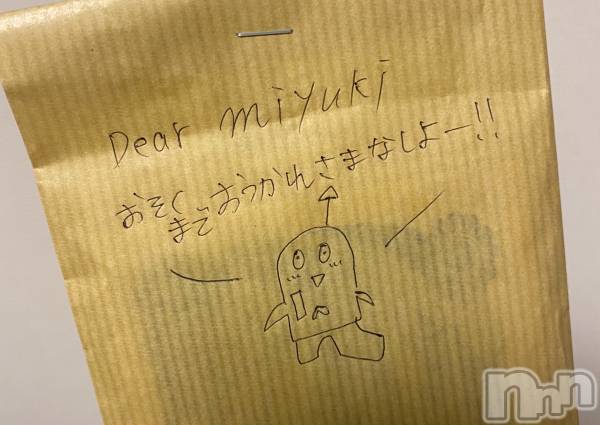 Dear miyuki
おそく
までおつかれさまなしよー!!
nnn